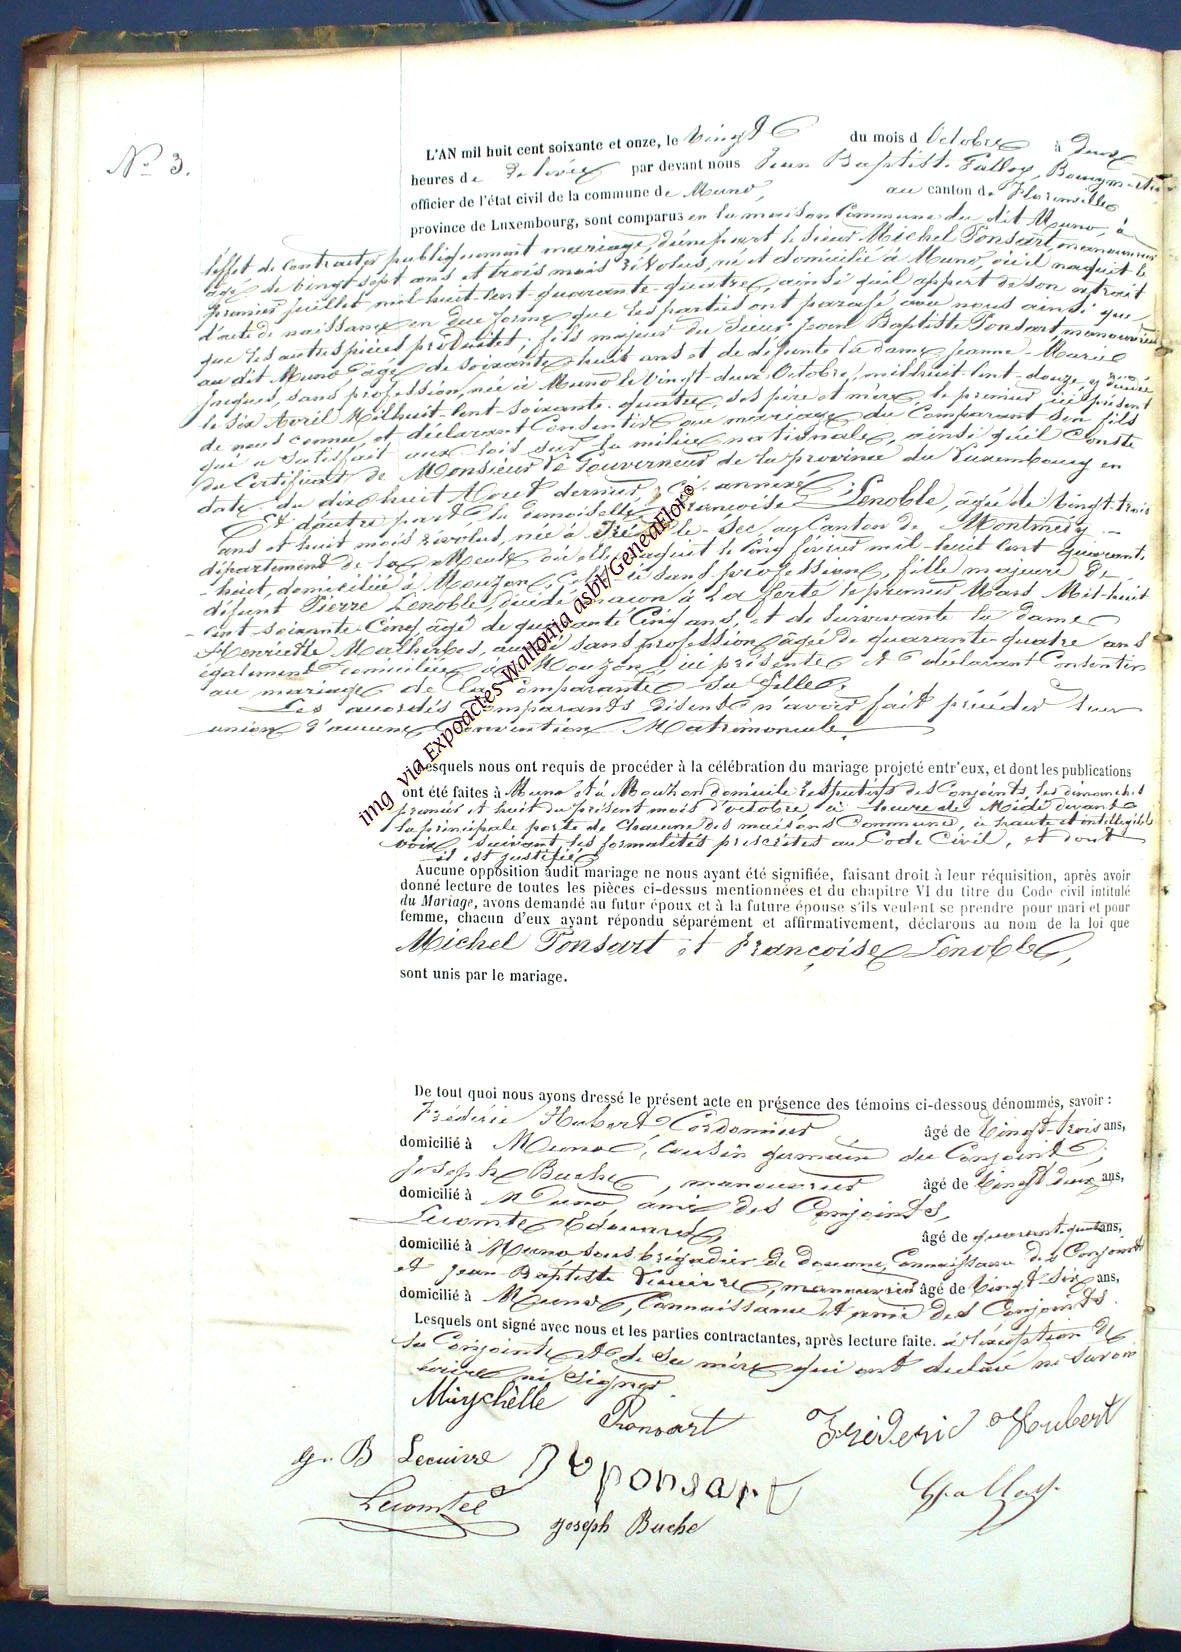 N° 3.
L'AN mil huit cent soixante et onze, le Vingt du mois d Octobre à deux
heures de relevée par devant nous Jean Baptiste Bourgmestre
officier de l'état civil de la commune de Muno, au canton de Florenville
province de Luxembourg, sont comparus en la maison Commune du dit Muno, à
l'effet de contracter publiquement mariage, d'une part le Sieur Michel Ponsart, manouvrier
âgé de vingt sept ans et trois mois révolus, né et domicilié à Muno, où il naquit le
premier juillet mil huit cent quarante quatre, ainsi qu'il appert de son extrait
d'acte de naissance en due forme que les parties ont paraphé avec nous ainsi que
que les autres pièces produites; fils majeur du Sieur Jean Baptiste Ponsart, manouvrier
au dit Muno âgé de soixante huit ans et de défunte la dame Jeanne-Marie
Jacques, sans profession, née à Muno le vingt-deux Octobre, mil huit cent douze, y décédée
le six Avril Mil huit-cent-soixante-quatre, ses père et mère, le premier ici présent
de nous connu, et déclarant Consentir au mariage du Comparant son fils
qui a satisfait aux lois sur la milice nationale, ainsi qu'il Conste
du Certificat de Monsieur le Gouverneur de la province du Luxembourg en
date du dix huit Aout dernier, ci annexé;
Et d'autre part, la demoiselle Françoise Lenoble, âgée de Vingt-trois
ans et huit mois révolus, née à le Sec, au Canton de Montmedy
département de la Meuse où elle naquit le Cinq février mil-huit cent quarante
huit, domiciliée à Mouzon, sans profession, fille majeure de
défunt Pierre Lenoble, décédé maçon à La ferté le premier Mars Mil-huit
cent-soixante-Cinq âgé de quarante Cinq ans, et de survivante la dame
Henriette Malherbes, aussi sans profession âgée de quarante-quatre ans
également domiciliée à Mouzon, ici présente et déclarant Consentir
au mariage de la Comparante sa fille.
Les accordés Comparants disent n'avoir fait précéder leur
union d'aucune Convention Matrimoniale.
Lesquels nous ont requis de procéder à la célébration du mariage projeté entr'eux, et dont les publications
ont été faites à Muno et à Mouzon domicile respectifs des Conjoints, les dimanches
premier et huit du présent mois d'octobre à heure de Midi devant
la principale porte de Chacune des maisons Commune, à haute et intelligible
voix, suivant les formalités prescrites au Code Civil, et dont
il est justifié
Aucune opposition audit mariage ne nous ayant été signifiée, faisant droit à leur réquisition, après avoir
donné lecture de toutes les pièces ci-dessus mentionnées et du chapitre VI du titre du Code civil intitulé
du Mariage, avons demandé au futur époux et à la future épouse s'ils veulent se prendre pour mari et pour
femme, chacun d'eux ayant répondu séparément et affirmativement, déclarons au nom de la loi que
Michel Ponsart et Françoise Lenoble,
sont unis par le mariage.
De tout quoi nous ayons dressé le présent acte en présence des témoins ci-dessous dénommés, savoir :
Frédéric Hubert Cordonnier âgé de Vingt-trois ans,
domicilié à Muno, Cousin germain du Conjoint,
Joseph Buche, manouvrier âgé de Vingt deux ans,
domicilié à Muno ami des Conjoints,
Lecomte Edouard, âgé de ans,
domicilié à Muno sous brigadier de douane, Connaissance des Conjoints
et Jean-Baptiste Lecuivre, manouvrier âgé de Vingt-six ans,
domicilié à Muno, Connaissance et ami des Conjoints.
Lesquels ont signé avec nous et les parties contractantes, après lecture faite. à l'exception de
la Conjointe et de sa mère qui ont déclaré ne savoir
écrire ni signer
Muychèlle Ponsart Frédéric Hubert
J. B Lecuivre ponsart
Lecomte Joseph Buche
img via Expoactes Wallonia asbl/GeneaFlor©